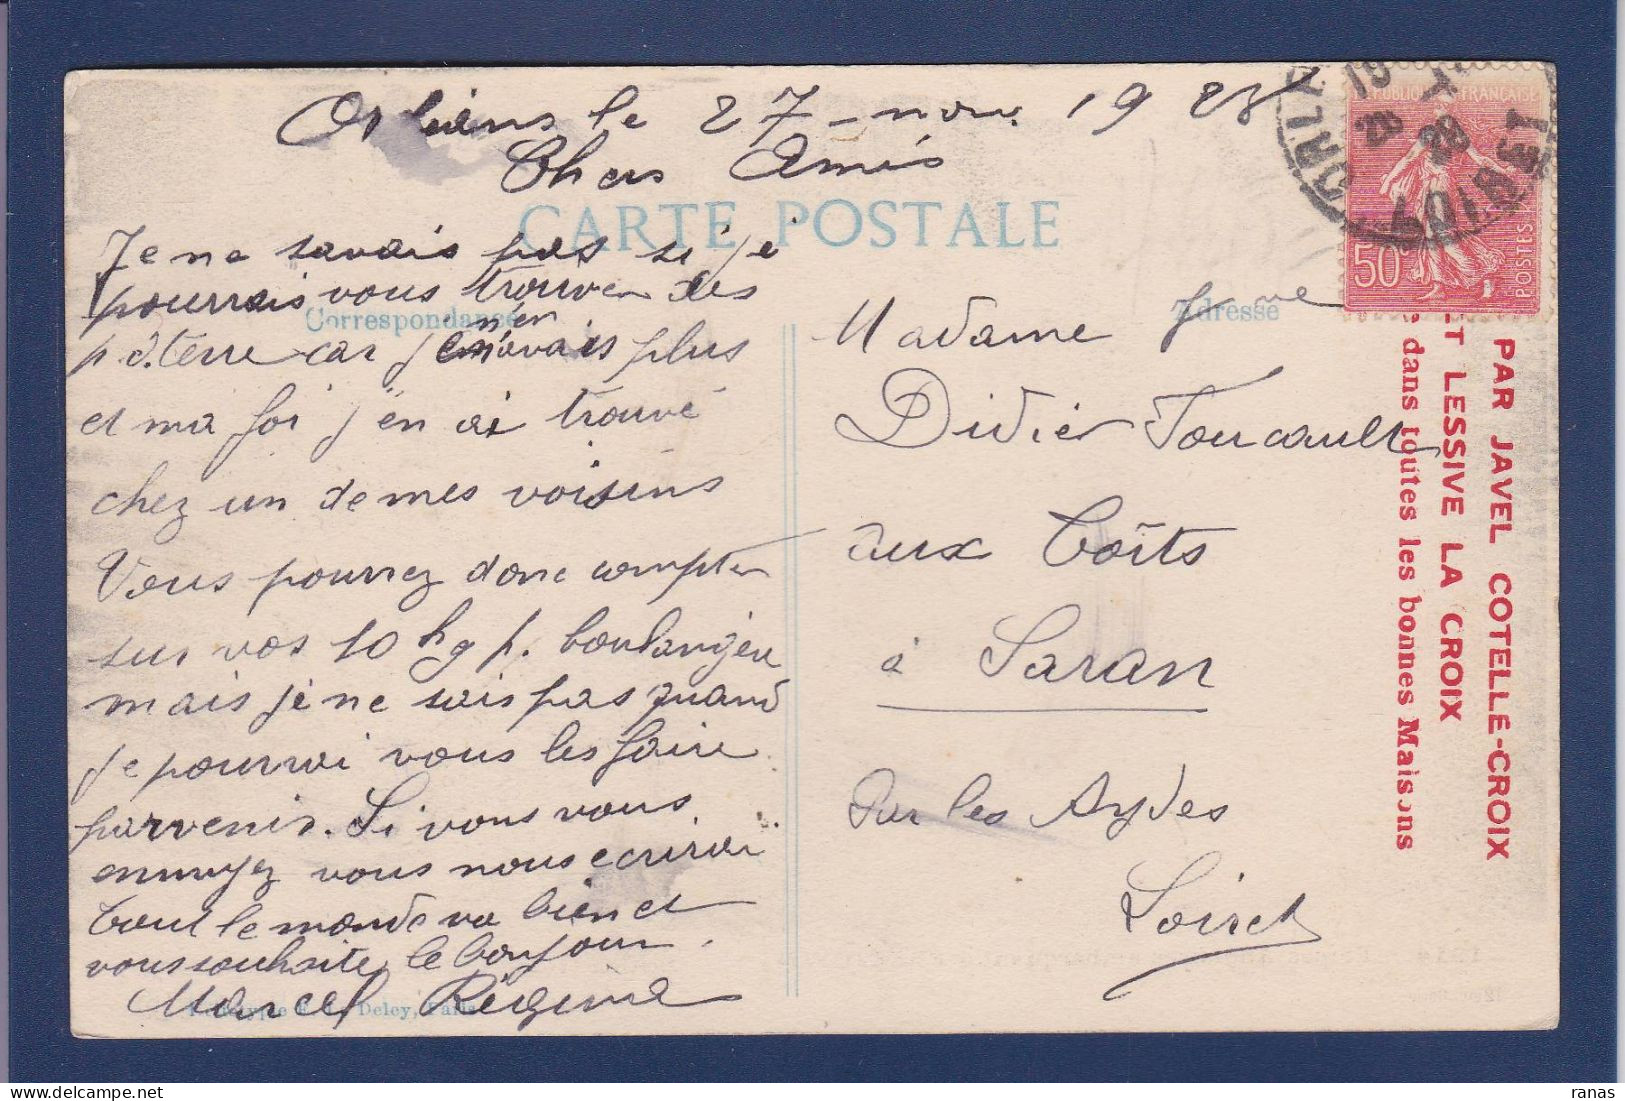 Orléans le 27 - nov. 1928
Chers Amis
CARTE POSTALE
Je ne savais pas si je
pourrais vous trouver des
Correspondance
p. d. terre car j'en n'en avais plus
et ma foi j'en ai trouvé
chez un de mes voisins
Vous pourrez donc compter
sur vos 10 kg p. boulangère
mais je ne sais pas quand
je pourrai vous les faire
parvenir. Si vous vous
ennuyez vous nous ecrirai
tout le monde va bien et
vous souhaite le bonjour.
Marcel Régine
Deley, Paris
Adresse
Madame Jne
Didier Foucault
aux Coîts
à Saran
Par les Aydes
Loiret
REPUBLIQUE FRANÇAISE
50c
POSTES
ORLE
LOIRET
28
PAR JAVEL COTELLE-CROIX
ET LESSIVE LA CROIX
dans toutes les bonnes Maisons
ranas